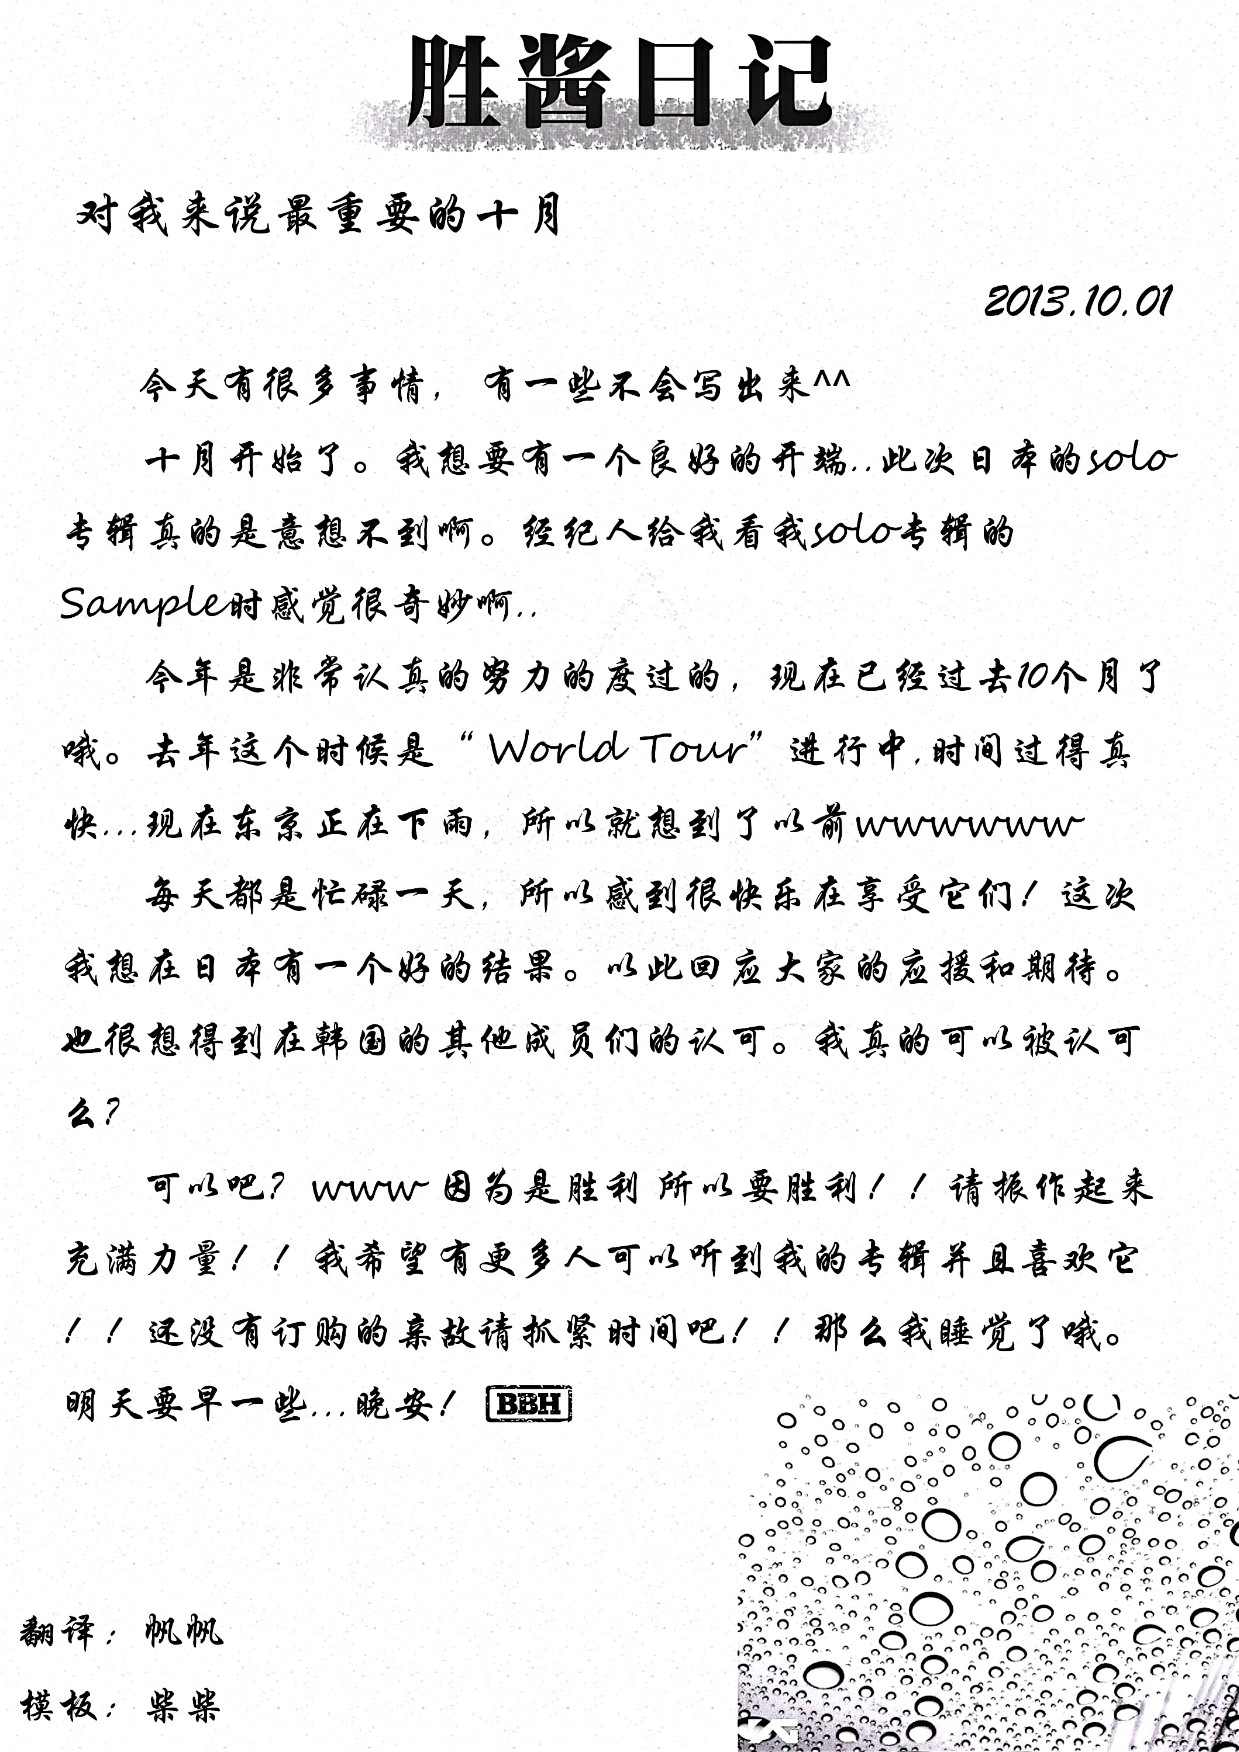 胜酱日记
对我来说最重要的十月
2013.10.01
今天有很多事情，有一些不会写出来^^
十月开始了。我想要有一个良好的开端..此次日本的solo
专辑真的是意想不到啊。经纪人给我看我solo专辑的
Sample时感觉很奇妙啊..
今年是非常认真的努力的度过的，现在已经过去10个月了
哦。去年这个时候是“World Tour”进行中,时间过得真
快...现在东京正在下雨，所以就想到了以前wwwwww
每天都是忙碌一天，所以感到很快乐在享受它们！这次
我想在日本有一个好的结果。以此回应大家的应援和期待。
也很想得到在韩国的其他成员们的认可。我真的可以被认可
么？
可以吧？www因为是胜利 所以要胜利！！请振作起来
充满力量！！我希望有更多人可以听到我的专辑并且喜欢它
！！还没有订购的亲故请抓紧时间吧！！那么我睡觉了哦。
明天要早一些...晚安！ BBH
翻译：帆帆
模板：柴柴
YG